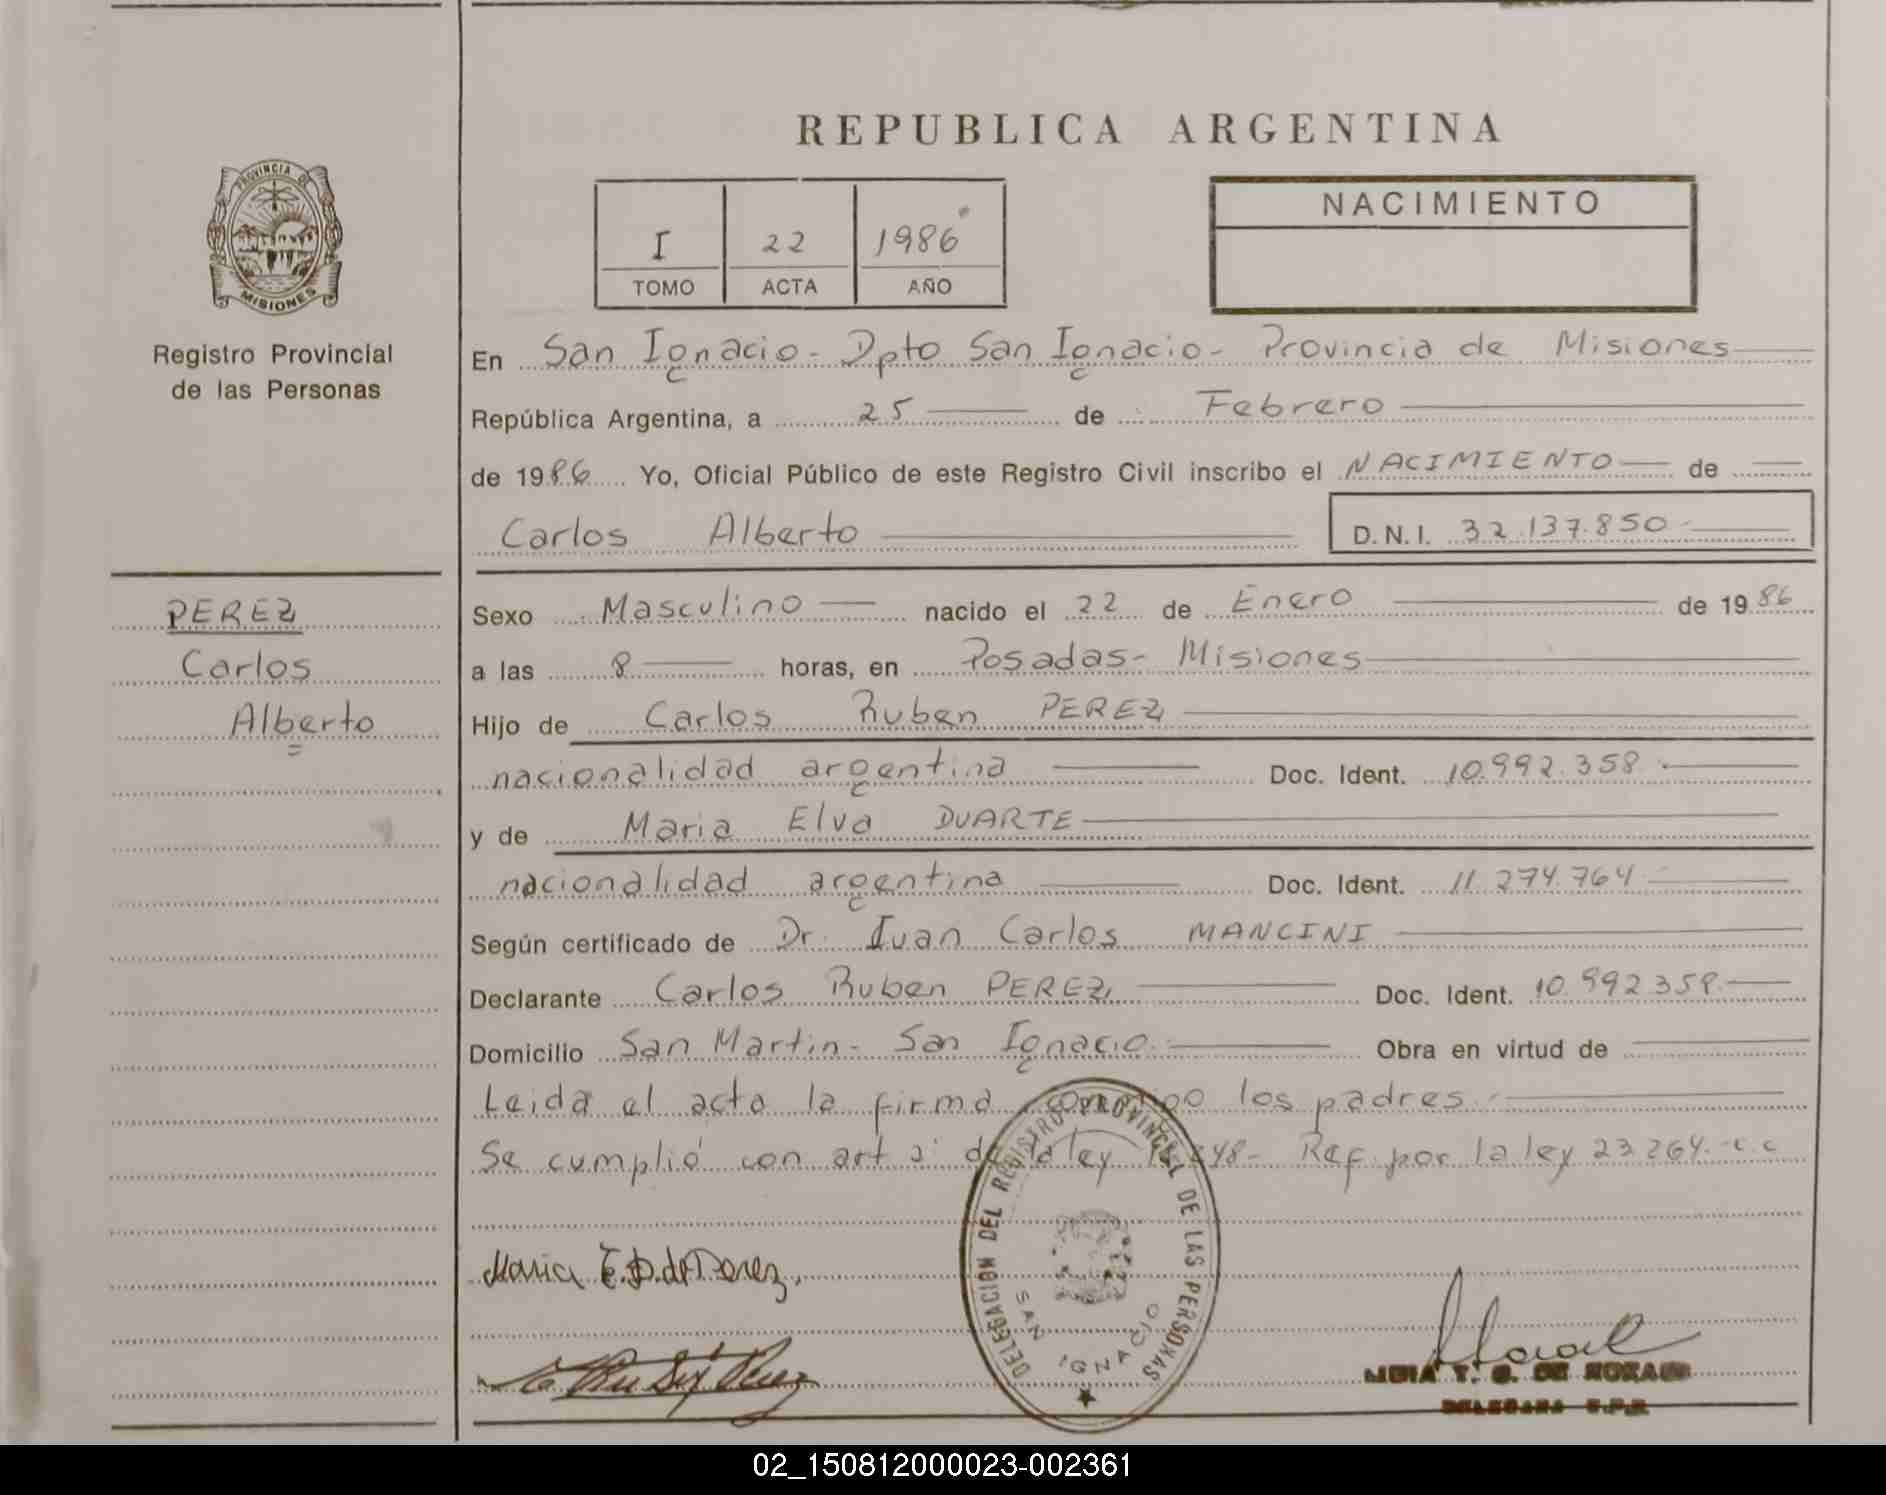 REPUBLICA ARGENTINA
PROVINCIA DE
MISIONES
Registro Provincial
de las Personas
I 22 1986
TOMO ACTA AÑO
NACIMIENTO
En San Ignacio - Dpto San Ignacio - Provincia de Misiones
República Argentina, a 25 de Febrero
de 1986 Yo, Oficial Público de este Registro Civil inscribo el NACIMIENTO de
Carlos Alberto D.N.I. 32.137.850
PEREZ
Carlos
Alberto
Sexo Masculino nacido el 22 de Enero de 1986
a las 8 horas, en Posadas - Misiones
Hijo de Carlos Ruben PEREZ
nacionalidad argentina Doc. Ident. 10.992.358
y de Maria Elva DUARTE
nacionalidad argentina Doc. Ident. 11.274.764
Según certificado de Dr. Juan Carlos MANCINI
Declarante Carlos Ruben PEREZ Doc. Ident. 10.992.358
Domicilio San Martin - San Ignacio Obra en virtud de
Leida el acta la firma conmigo los padres
Se cumplió con art de la ley Ref. por la ley 23.264. c.c
DELEGACION DEL REGISTRO PROVINCIAL DE LAS PERSONAS
SAN IGNACIO
Maria E. D. de Perez.
02_150812000023-002361